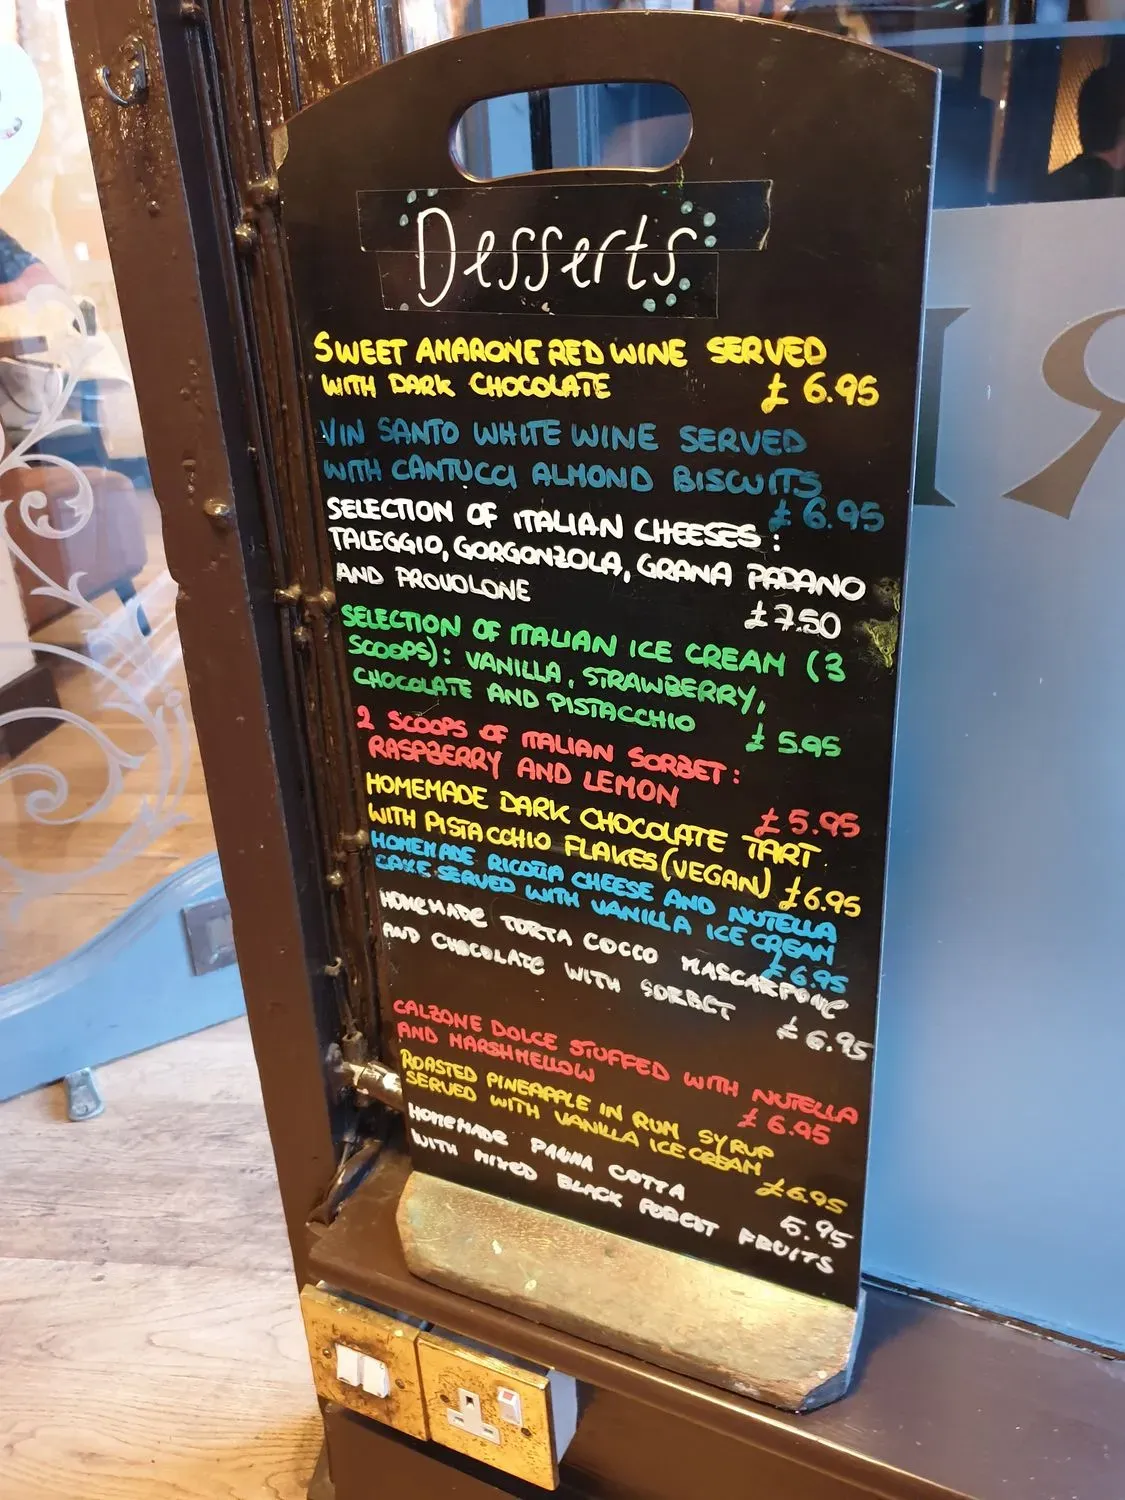 Desserts
SWEET AMARONE RED WINE SERVED
WITH DARK CHOCOLATE £ 6.95
VIN SANTO WHITE WINE SERVED
WITH CANTUCCI ALMOND BISCUITS
£ 6.95
SELECTION OF ITALIAN CHEESES :
TALEGGIO, GORGONZOLA, GRANA PADANO
AND PROVOLONE £ 7.50
SELECTION OF ITALIAN ICE CREAM (3
SCOOPS) : VANILLA, STRAWBERRY,
CHOCOLATE AND PISTACCHIO £ 5.95
2 SCOOPS OF ITALIAN SORBET :
RASPBERRY AND LEMON £ 5.95
HOMEMADE DARK CHOCOLATE TART
WITH PISTACCHIO FLAKES (VEGAN) £6.95
HOMEMADE RICOTTA CHEESE AND NUTELLA
CAKE SERVED WITH VANILLA ICE CREAM
£6.95
HOMEMADE TORTA COCCO MASCARPONE
AND CHOCOLATE WITH SORBET £ 6.95
CALZONE DOLCE STUFFED WITH NUTELLA
AND MARSHMELLOW £ 6.95
ROASTED PINEAPPLE IN RUM SYRUP
SERVED WITH VANILLA ICE CREAM £6.95
HOMEMADE PANNA COTTA 5.95
WITH MIXED BLACK FOREST FRUITS